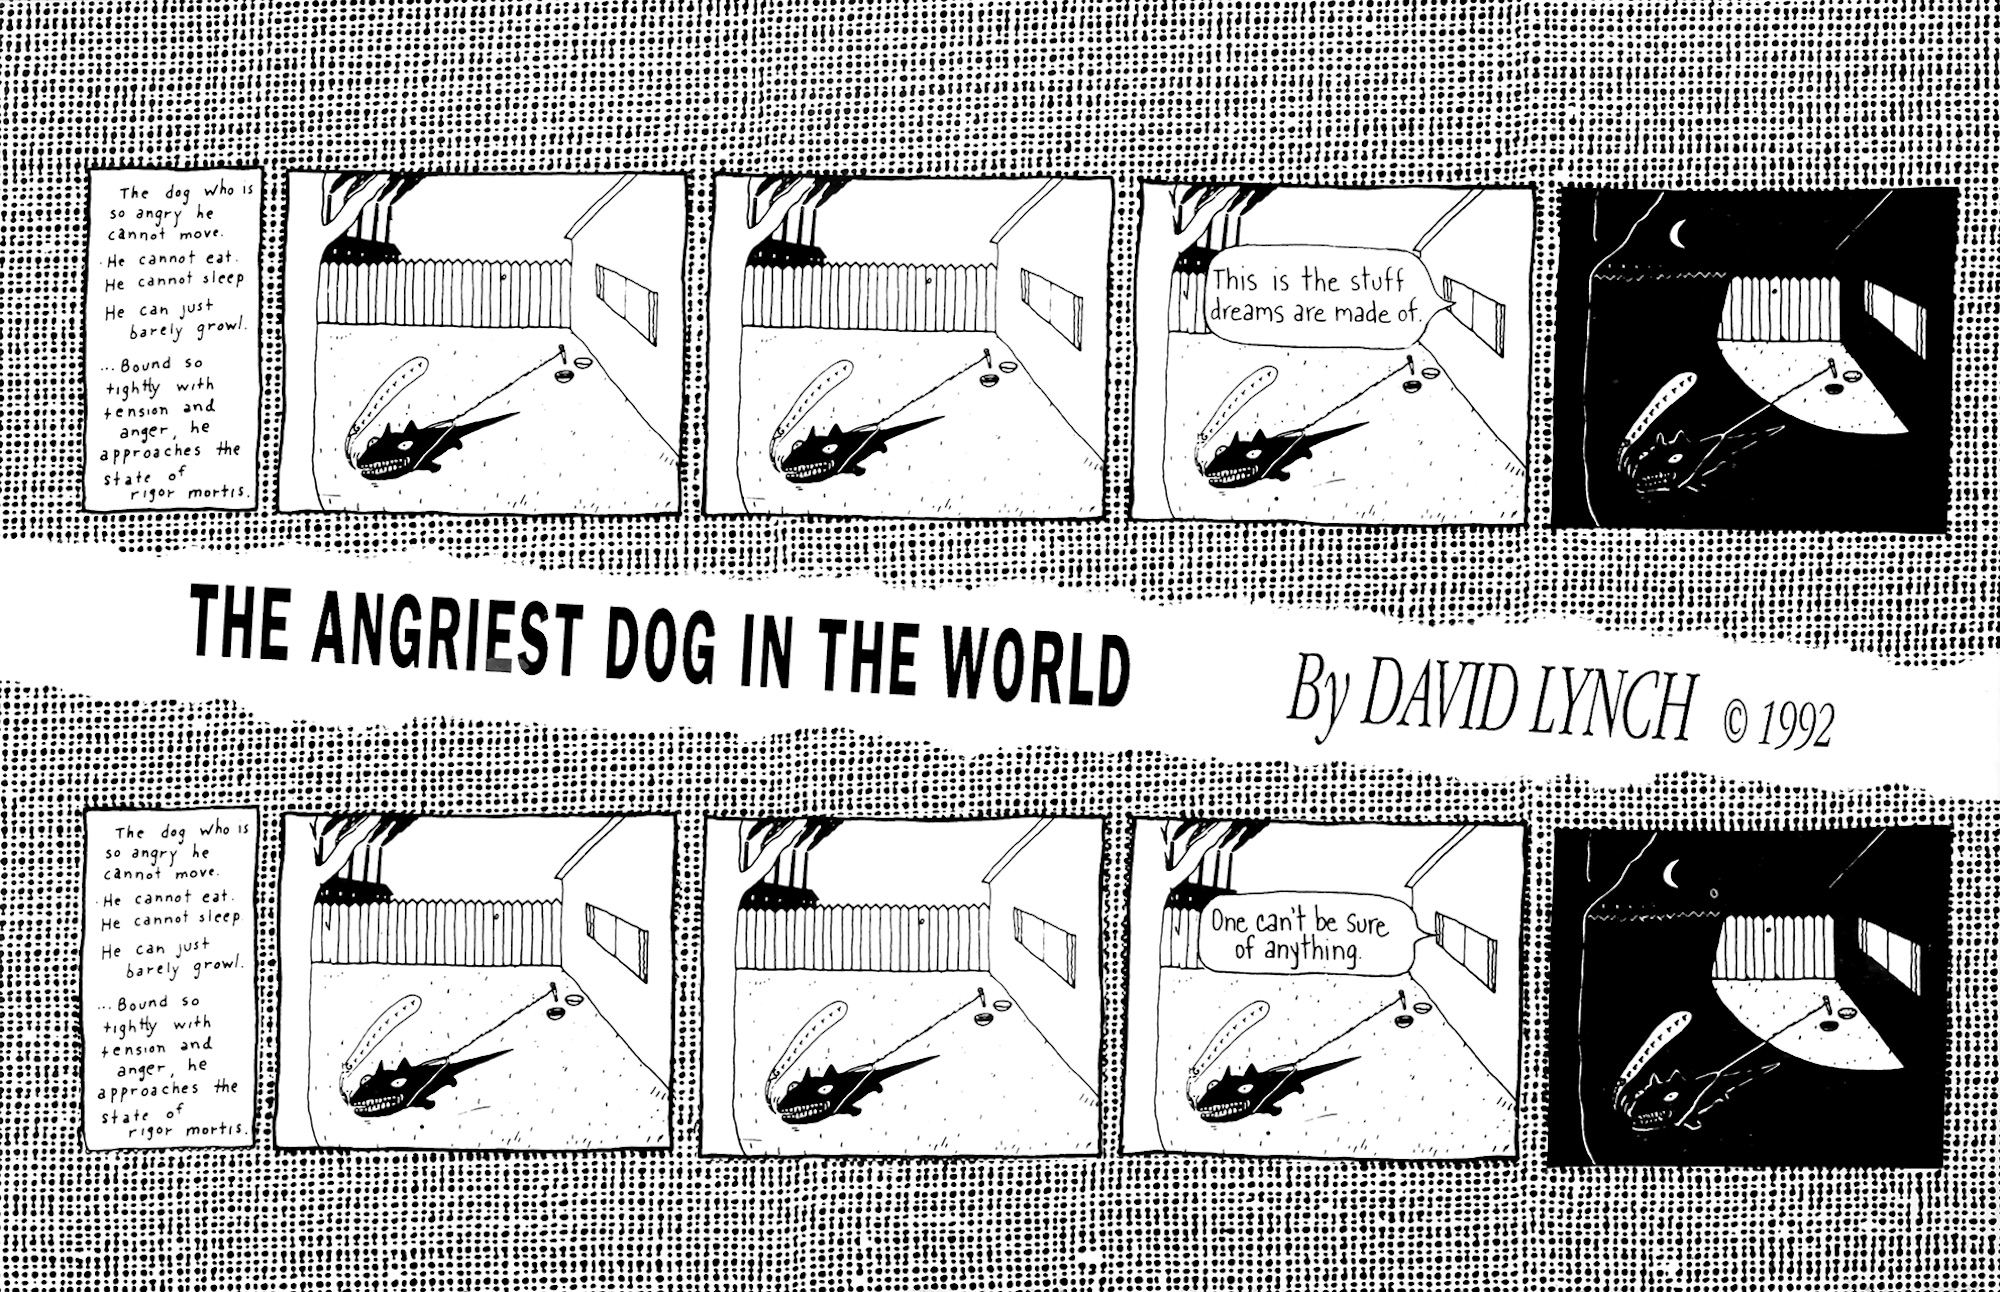 The dog who is
so angry he
cannot move.
He cannot eat.
He cannot sleep
He can just
barely growl.
...Bound so
tightly with
tension and
anger, he
approaches the
state of
rigor mortis.
This is the stuff
dreams are made of.
THE ANGRIEST DOG IN THE WORLD By DAVID LYNCH © 1992
The dog who is
so angry he
cannot move.
He cannot eat.
He cannot sleep
He can just
barely growl.
...Bound so
tightly with
tension and
anger, he
approaches the
state of
rigor mortis.
One can't be sure
of anything.